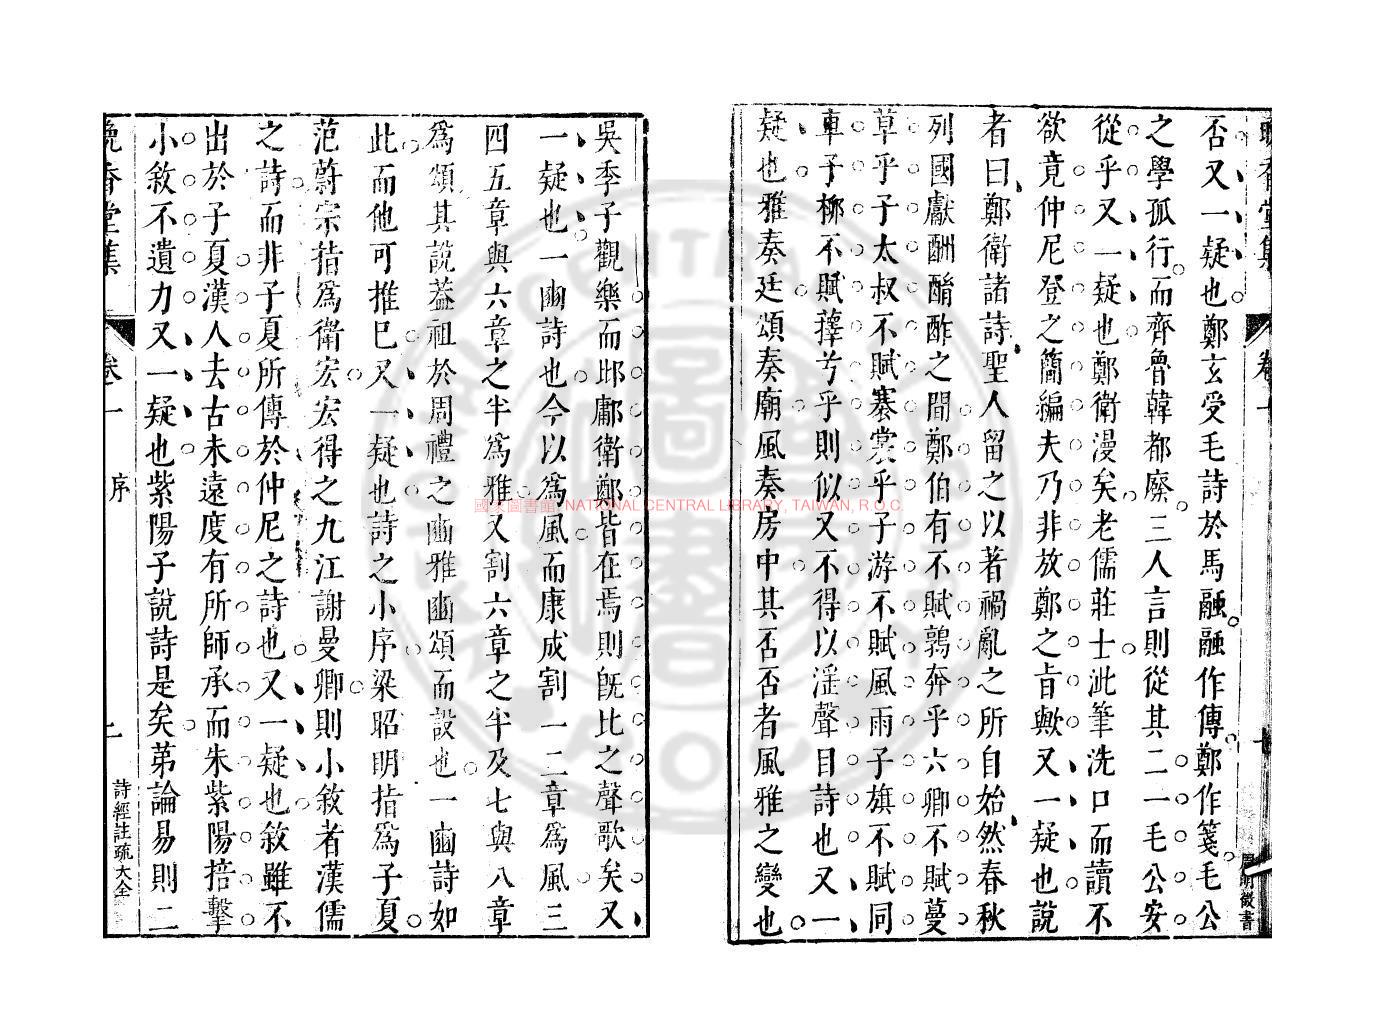 否又一疑也鄭玄受毛詩於馬融融作傳鄭作箋毛公
之學孤行而齊魯韓都廢三人言則從其二一毛公安
從乎又一疑也鄭衛漫矣老儒莊士泚筆洗口而讀不
欲竟仲尼登之簡編夫乃非放鄭之旨歟又一疑也說
者曰鄭衛諸詩聖人留之以著禍亂之所自始然春秋
列國獻酬醋酢之間鄭伯有不賦鶉奔乎六卿不賦蔓
草乎子太叔不賦褰裳乎子游不賦風雨子旗不賦同
車子柳不賦蘀兮乎則似又不得以淫聲目詩也又一
疑也雅奏廷頌奏廟風奏房中其否否者風雅之變也
吳季子觀樂而邶鄘衛鄭皆在焉則旣比之聲歌矣又
一疑也一豳詩也今以為風而康成割一二章為風三
四五章與六章之半為雅又割六章之半及七與八章
為頌其說葢祖於周禮之豳雅豳頌而設也一豳詩如
此而他可推巳又一疑也詩之小序梁昭明指為子夏
范蔚宗指為衛宏宏得之九江謝曼卿則小敘者漢儒
之詩而非子夏所傳於仲尼之詩也又一疑也敘雖不
出於子夏漢人去古未遠度有所師承而朱紫陽掊擊
小敘不遺力又一疑也紫陽子說詩是矣苐論易則二
晚香堂集
卷一
序
二
詩經註疏大全
國家圖書館 NATIONAL CENTRAL LIBRARY, TAIWAN, R.O.C.